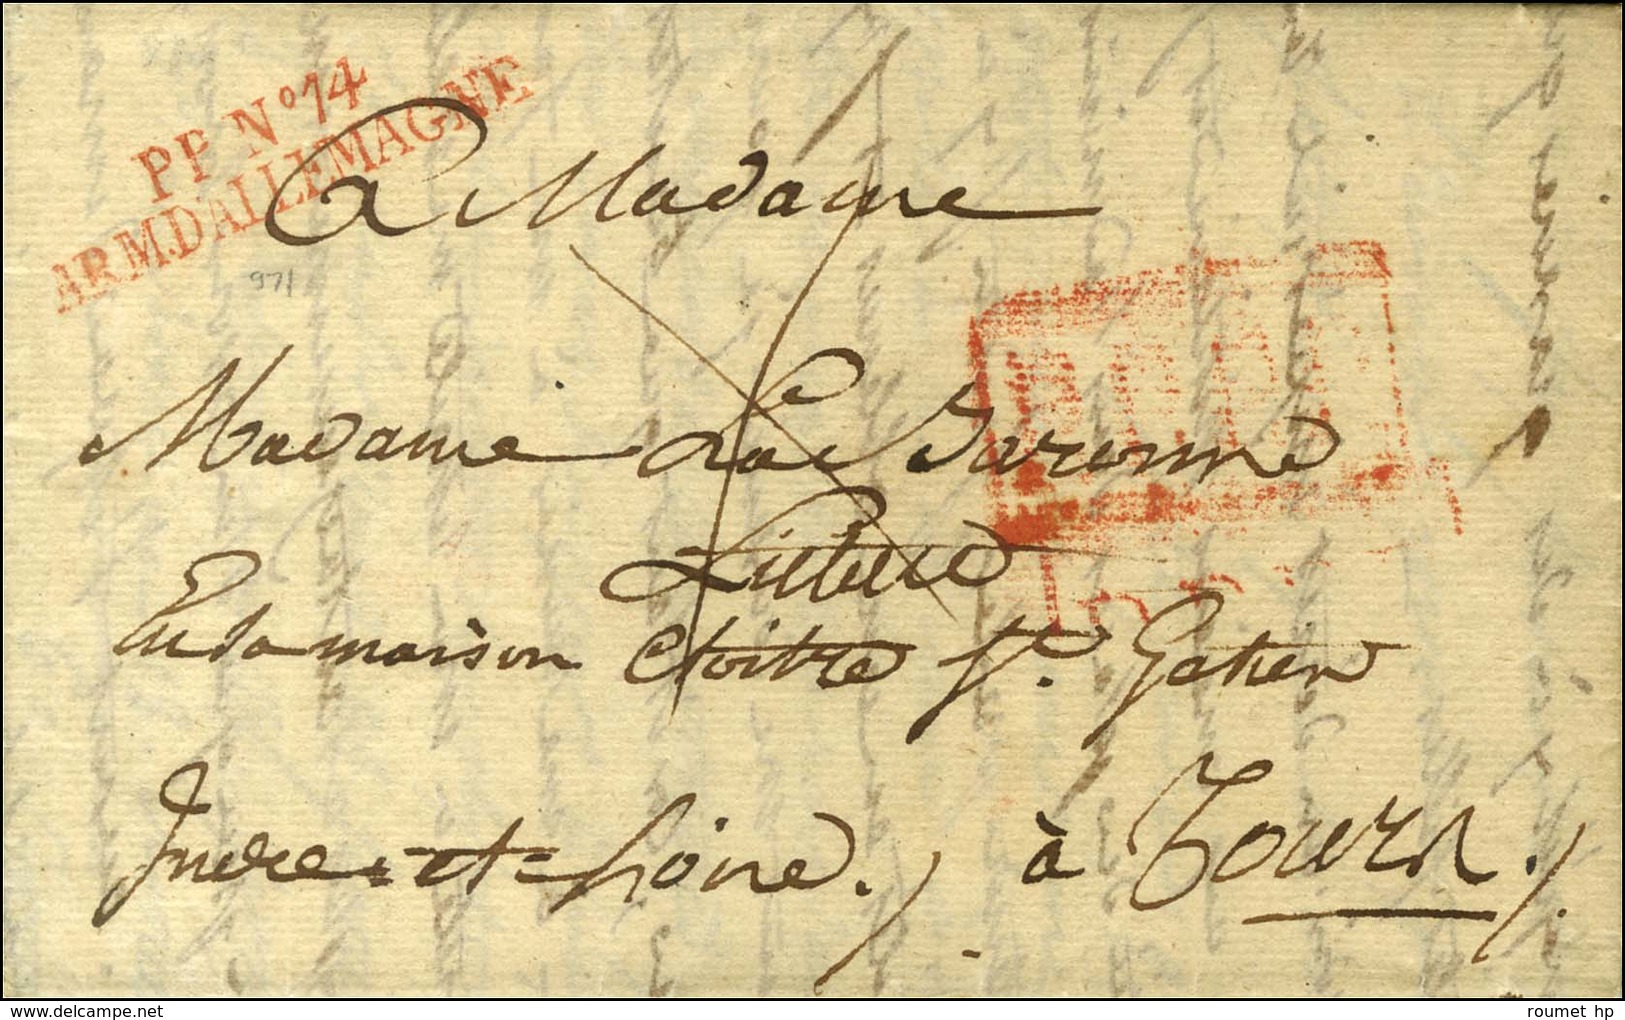 PP. Nº 14
ARM. D'ALLEMAGNE
a Madame
971
P.P.P.P.
Madame La Baronne
En sa maison Cloitre St. Gatien
Indre-et-Loire. à Tours.
roumet hp